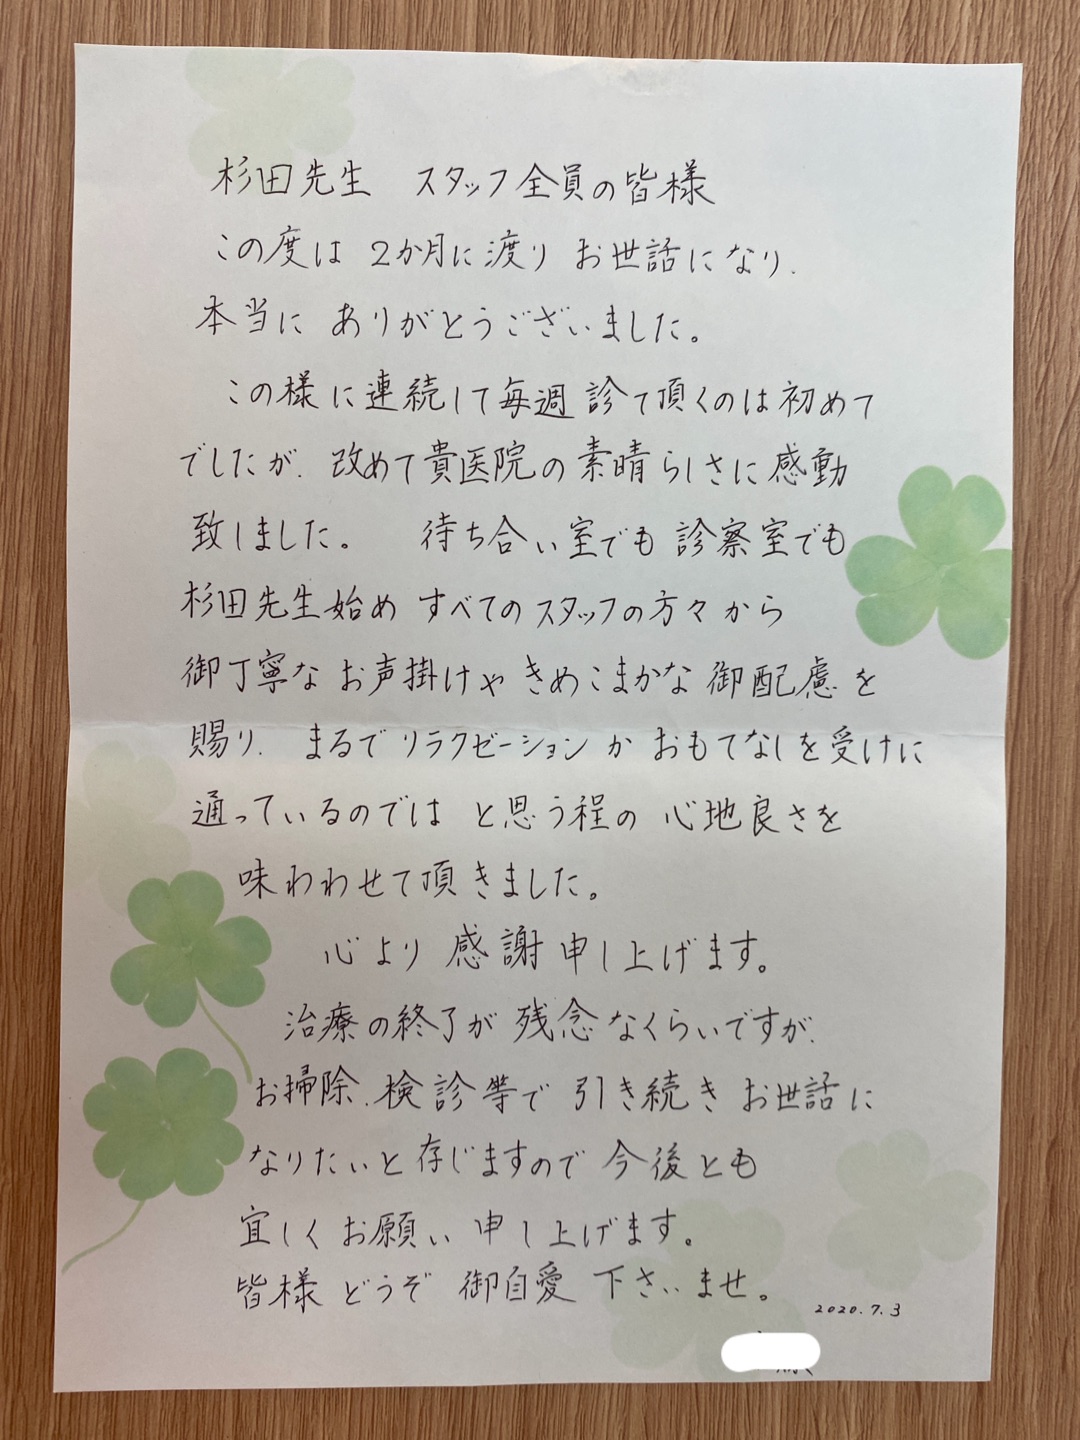 杉田先生　スタッフ全員の皆様
この度は 2か月に渡り お世話になり、
本当に ありがとうございました。
この様に連続して毎週 診て頂くのは初めて
でしたが、改めて貴医院の素晴らしさに感動
致しました。　待ち合い室でも 診察室でも
杉田先生始め すべてのスタッフの方々から
御丁寧な お声掛けや きめこまかな 御配慮を
賜り、まるで リラクゼーション か おもてなしを受けに
通っているのでは と思う程の 心地良さを
味わわせて頂きました。
心より 感謝 申し上げます。
治療の終了が 残念 なくらいですが、
お掃除、検診等で 引き続き お世話に
なりたいと存じますので 今後とも
宜しく お願い 申し上げます。
皆様 どうぞ 御自愛 下さいませ。
2020.7.3